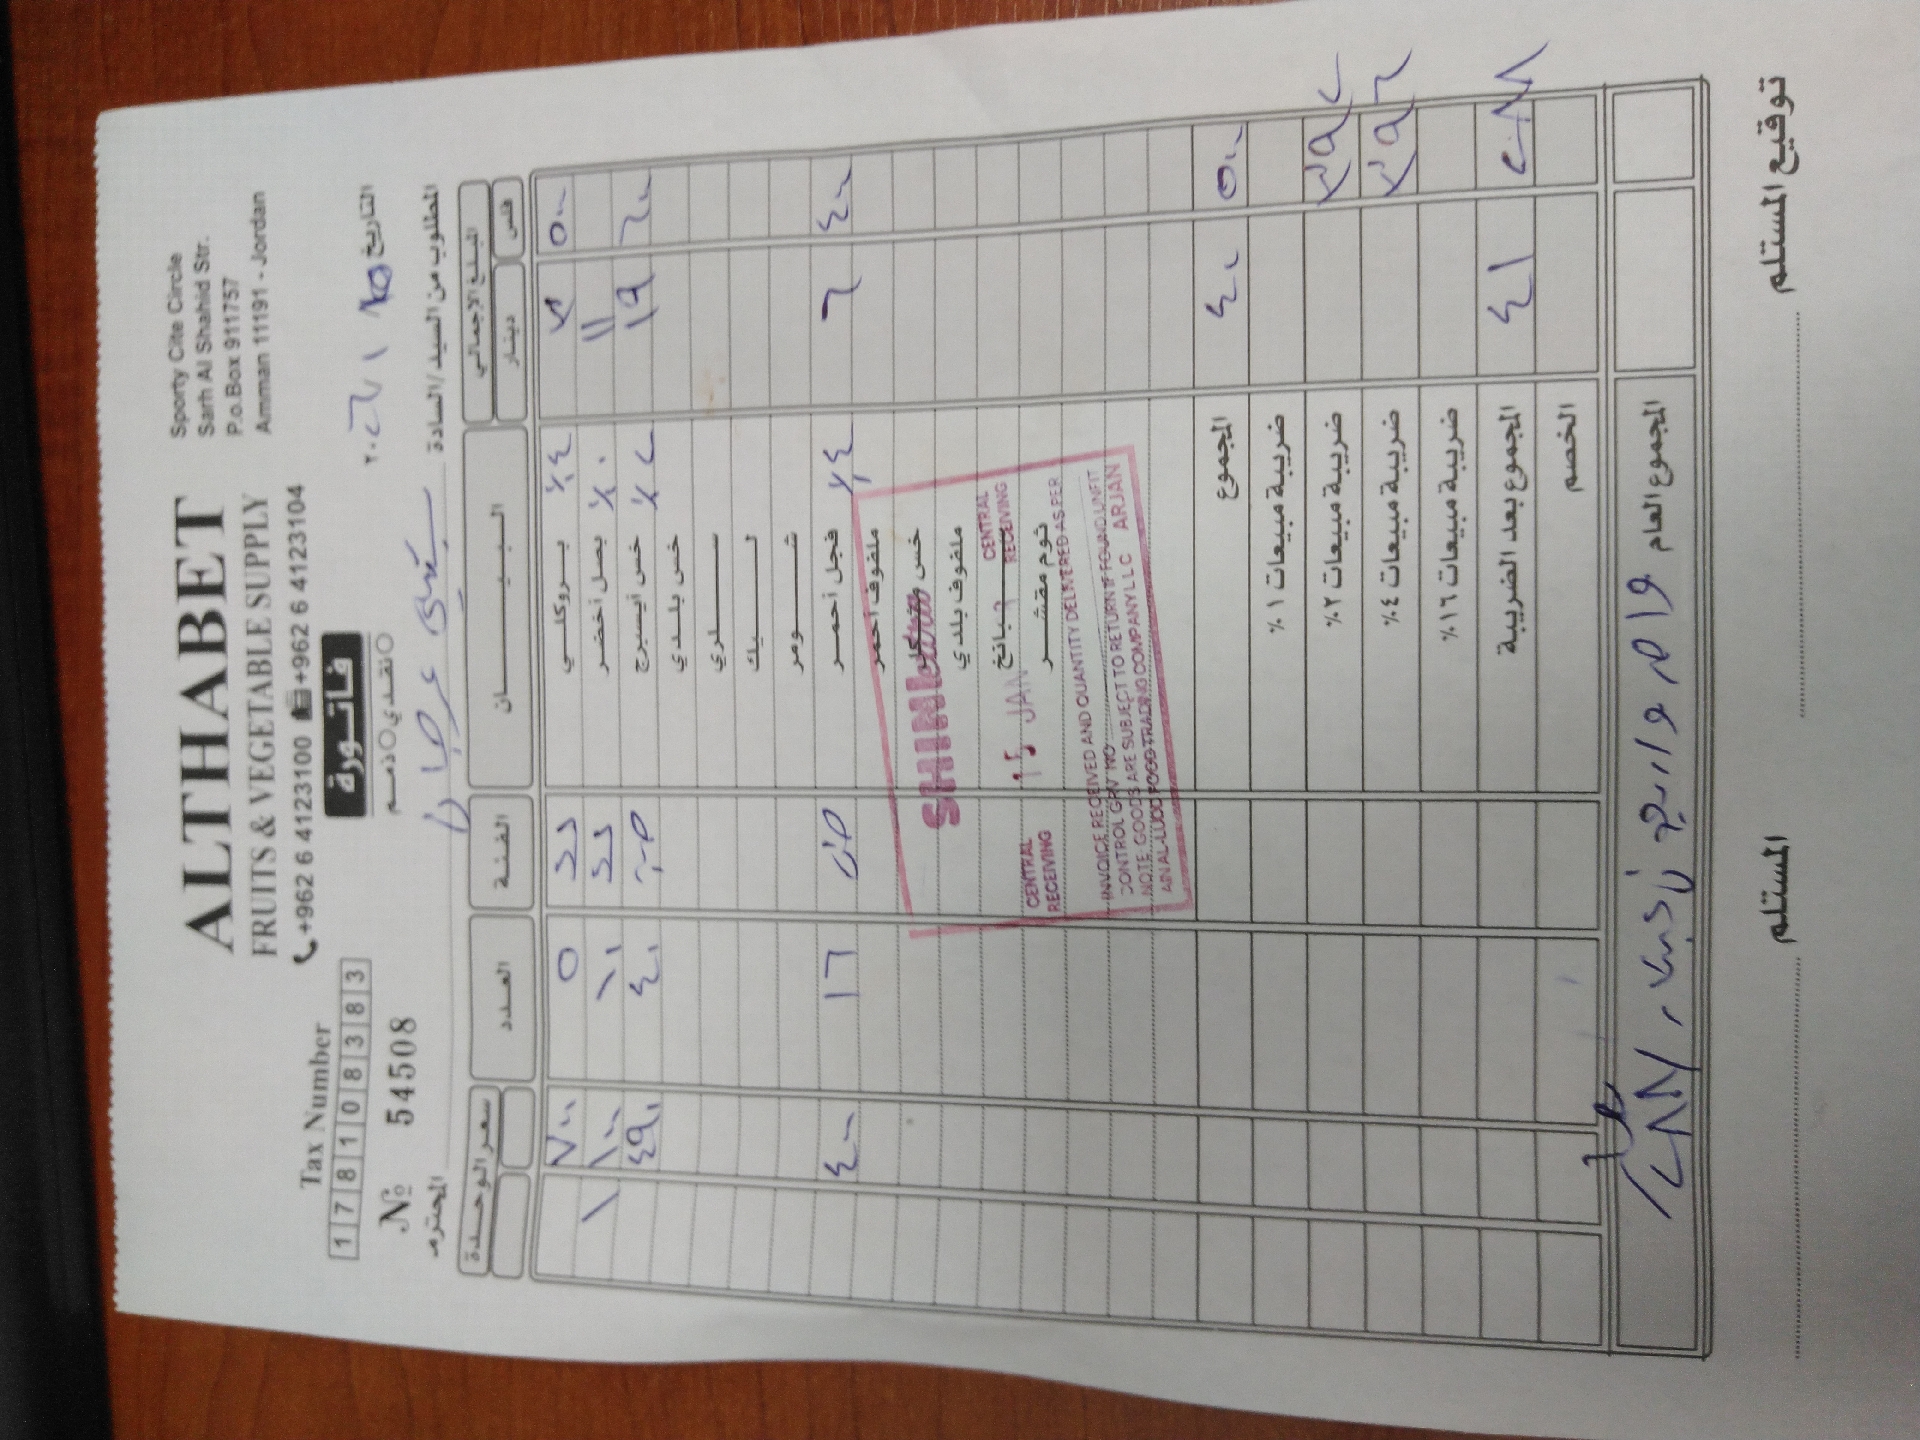 ALTHABET
FRUITS & VEGETABLE SUPPLY
+962 6 4123100 +962 6 4123104
Sporty Cite Circle
Sarh Al Shahid Str.
P.o.Box 911757
Amman 11191 - Jordan
Tax Number
1 7 8 1 0 8 3 8 3
فاتورة
نقدي ذمم
Nº 54508
التاريخ
المطلوب من السيد/السادة
المحترم
المبلغ الاجمالي البيـــــــان الفئة العدد سعر الوحدة
فلس دينار
٥٠٠ ٣ بروكلي ٪٤ ٥ ٧٠٠
١١ بصل أخضر ٪٠ ١٠ ١٠٠ ١
٦٠٠ ١٩ خس ايسبرج ٪٢ ٤٠ ٤٩٠
خس بلدي
سلري
ليك
شومر
٤٠٠ ٦ فجل أحمر ٪٤ ١٦ ٤٠٠
ملفوف أحمر
خس
ملفوف بلدي
سبانخ
ثوم مقشر
CENTRAL RECEIVING
CENTRAL RECEIVING
JAN
INVOICE RECEIVED AND QUANTITY DELIVERED AS PER
CONTROL GRV NO
NOTE GOODS ARE SUBJECT TO RETURN IF FOUND UNFIT
AIN AL-LUDD FOOD TRADING COMPANY LLC ARJAN
٥٠٠ ٤٠ المجموع
ضريبة مبيعات ١٪
٣٩٢ ضريبة مبيعات ٢٪
٣٩٦ ضريبة مبيعات ٤٪
ضريبة مبيعات ١٦٪
٢٨٨ ٤١ المجموع بعد الضريبة
الخصم
المجموع العام
المستلم توقيع المستلم